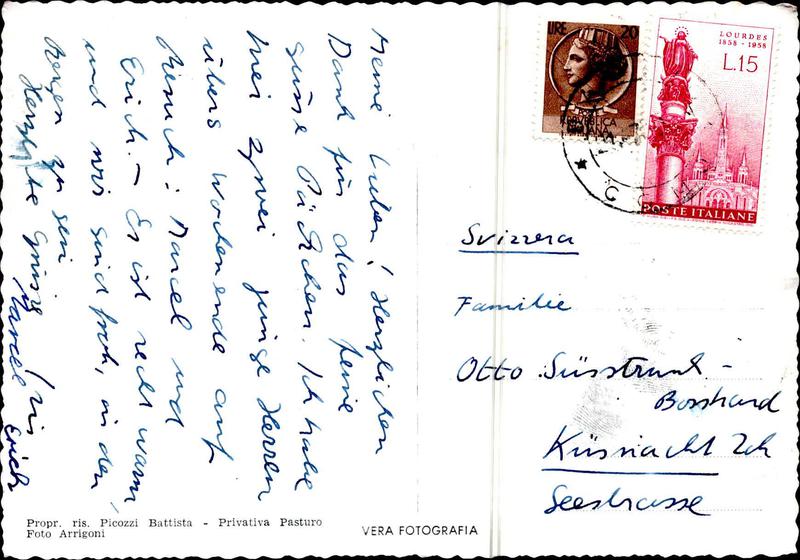 Meine Lieben! Herzlichen
Dank für das feine
süsse Päckchen. Ich habe
zwei junge Herren
übers Wochenende auf
Besuch: Marcel und
Erich. – Es ist recht warm,
und wir sind froh, in den
Bergen zu sein.
Herzliche Grüsse
Marcel Erich
LIRE 20
REPUBBLICA
ITALIANA
LOURDES
1858 - 1958
L.15
POSTE ITALIANE
Svizzera
Familie
Otto Süsstrunk -
Bosshard
Küsnacht Zch
Seestrasse
Propr. ris. Picozzi Battista - Privativa Pasturo
Foto Arrigoni
VERA FOTOGRAFIA